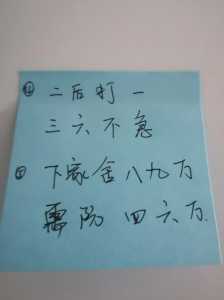 二后打一
三六不急
下家舍八九万
需防 四六万